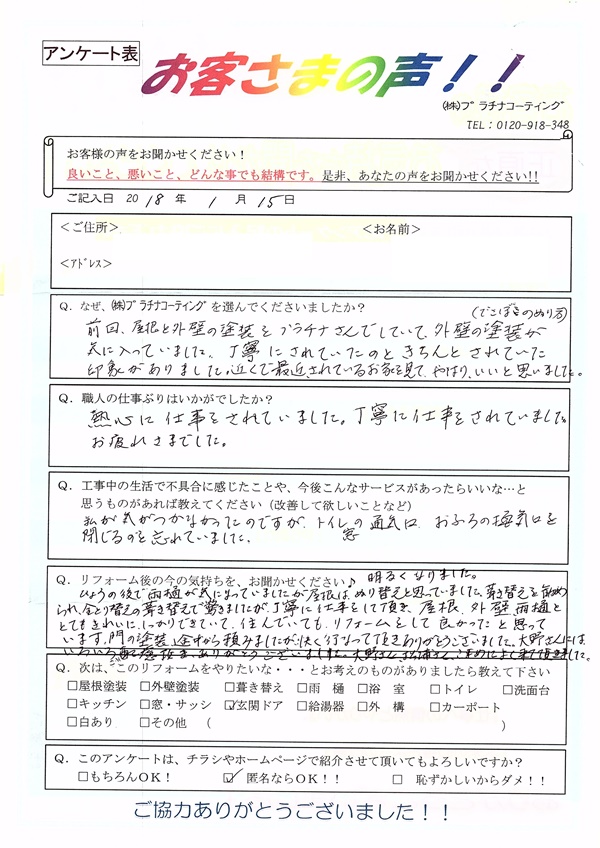 アンケート表
お客さまの声！！
(株)プラチナコーティング
TEL：0120-918-348
お客様の声をお聞かせください！
良いこと、悪いこと、どんな事でも結構です。是非、あなたの声をお聞かせください!!
ご記入日 2018年 1月15日
＜ご住所＞ ＜お名前＞
＜アドレス＞
Q．なぜ、(株)プラチナコーティングを選んでくださいましたか？
(でこぼこのぬり方)
前回、屋根と外壁の塗装をプラチナさんでしていて、外壁の塗装が
気に入っていました。丁寧にされていたのときちんとされていた
印象がありました。近くで最近、されているお家を見て、やはり、いいと思いました。
Q．職人の仕事ぶりはいかがでしたか？
熱心に仕事をされていました。丁寧に仕事をされていました。
お疲れさまでした。
Q．工事中の生活で不具合に感じたことや、今後こんなサービスがあったらいいな…と
思うものがあれば教えてください（改善して欲しいことなど）
私が気がつかなかったのですが、トイレの通気口、おふろの換気口を
窓
閉じるのを忘れていました。
Q．リフォーム後の今の気持ちを、お聞かせください♪ 明るくなりました。
ひょうの後で雨樋が気になっていましたが屋根は、ぬり替えと思っていました、葺き替えを勧め
られ、全とり替えの葺き替えで驚きましたが、丁寧に仕事をして頂き、屋根、外壁、雨樋と
とてもきれいに、しっかりできていて、住んでいても、リフォームをして良かったと思って
います。門の塗装、途中から頼みましたが、快く行なって頂きありがとうございました。大野さんには、
いろいろ
ありがとうございました。大野さん
Q．次は、このリフォームをやりたいな・・・とお考えのものがありましたら教えて下さい
□屋根塗装 □外壁塗装 □葺き替え □雨 樋 □浴 室 □トイレ □洗面台
□キッチン □窓・サッシ ☑玄関ドア □給湯器 □外 構 □カーポート
□白あり □その他（ ）
Q．このアンケートは、チラシやホームページで紹介させて頂いてもよろしいですか？
□もちろんOK！ ☑ 匿名ならOK！！ □ 恥ずかしいからダメ！！
ご協力ありがとうございました！！